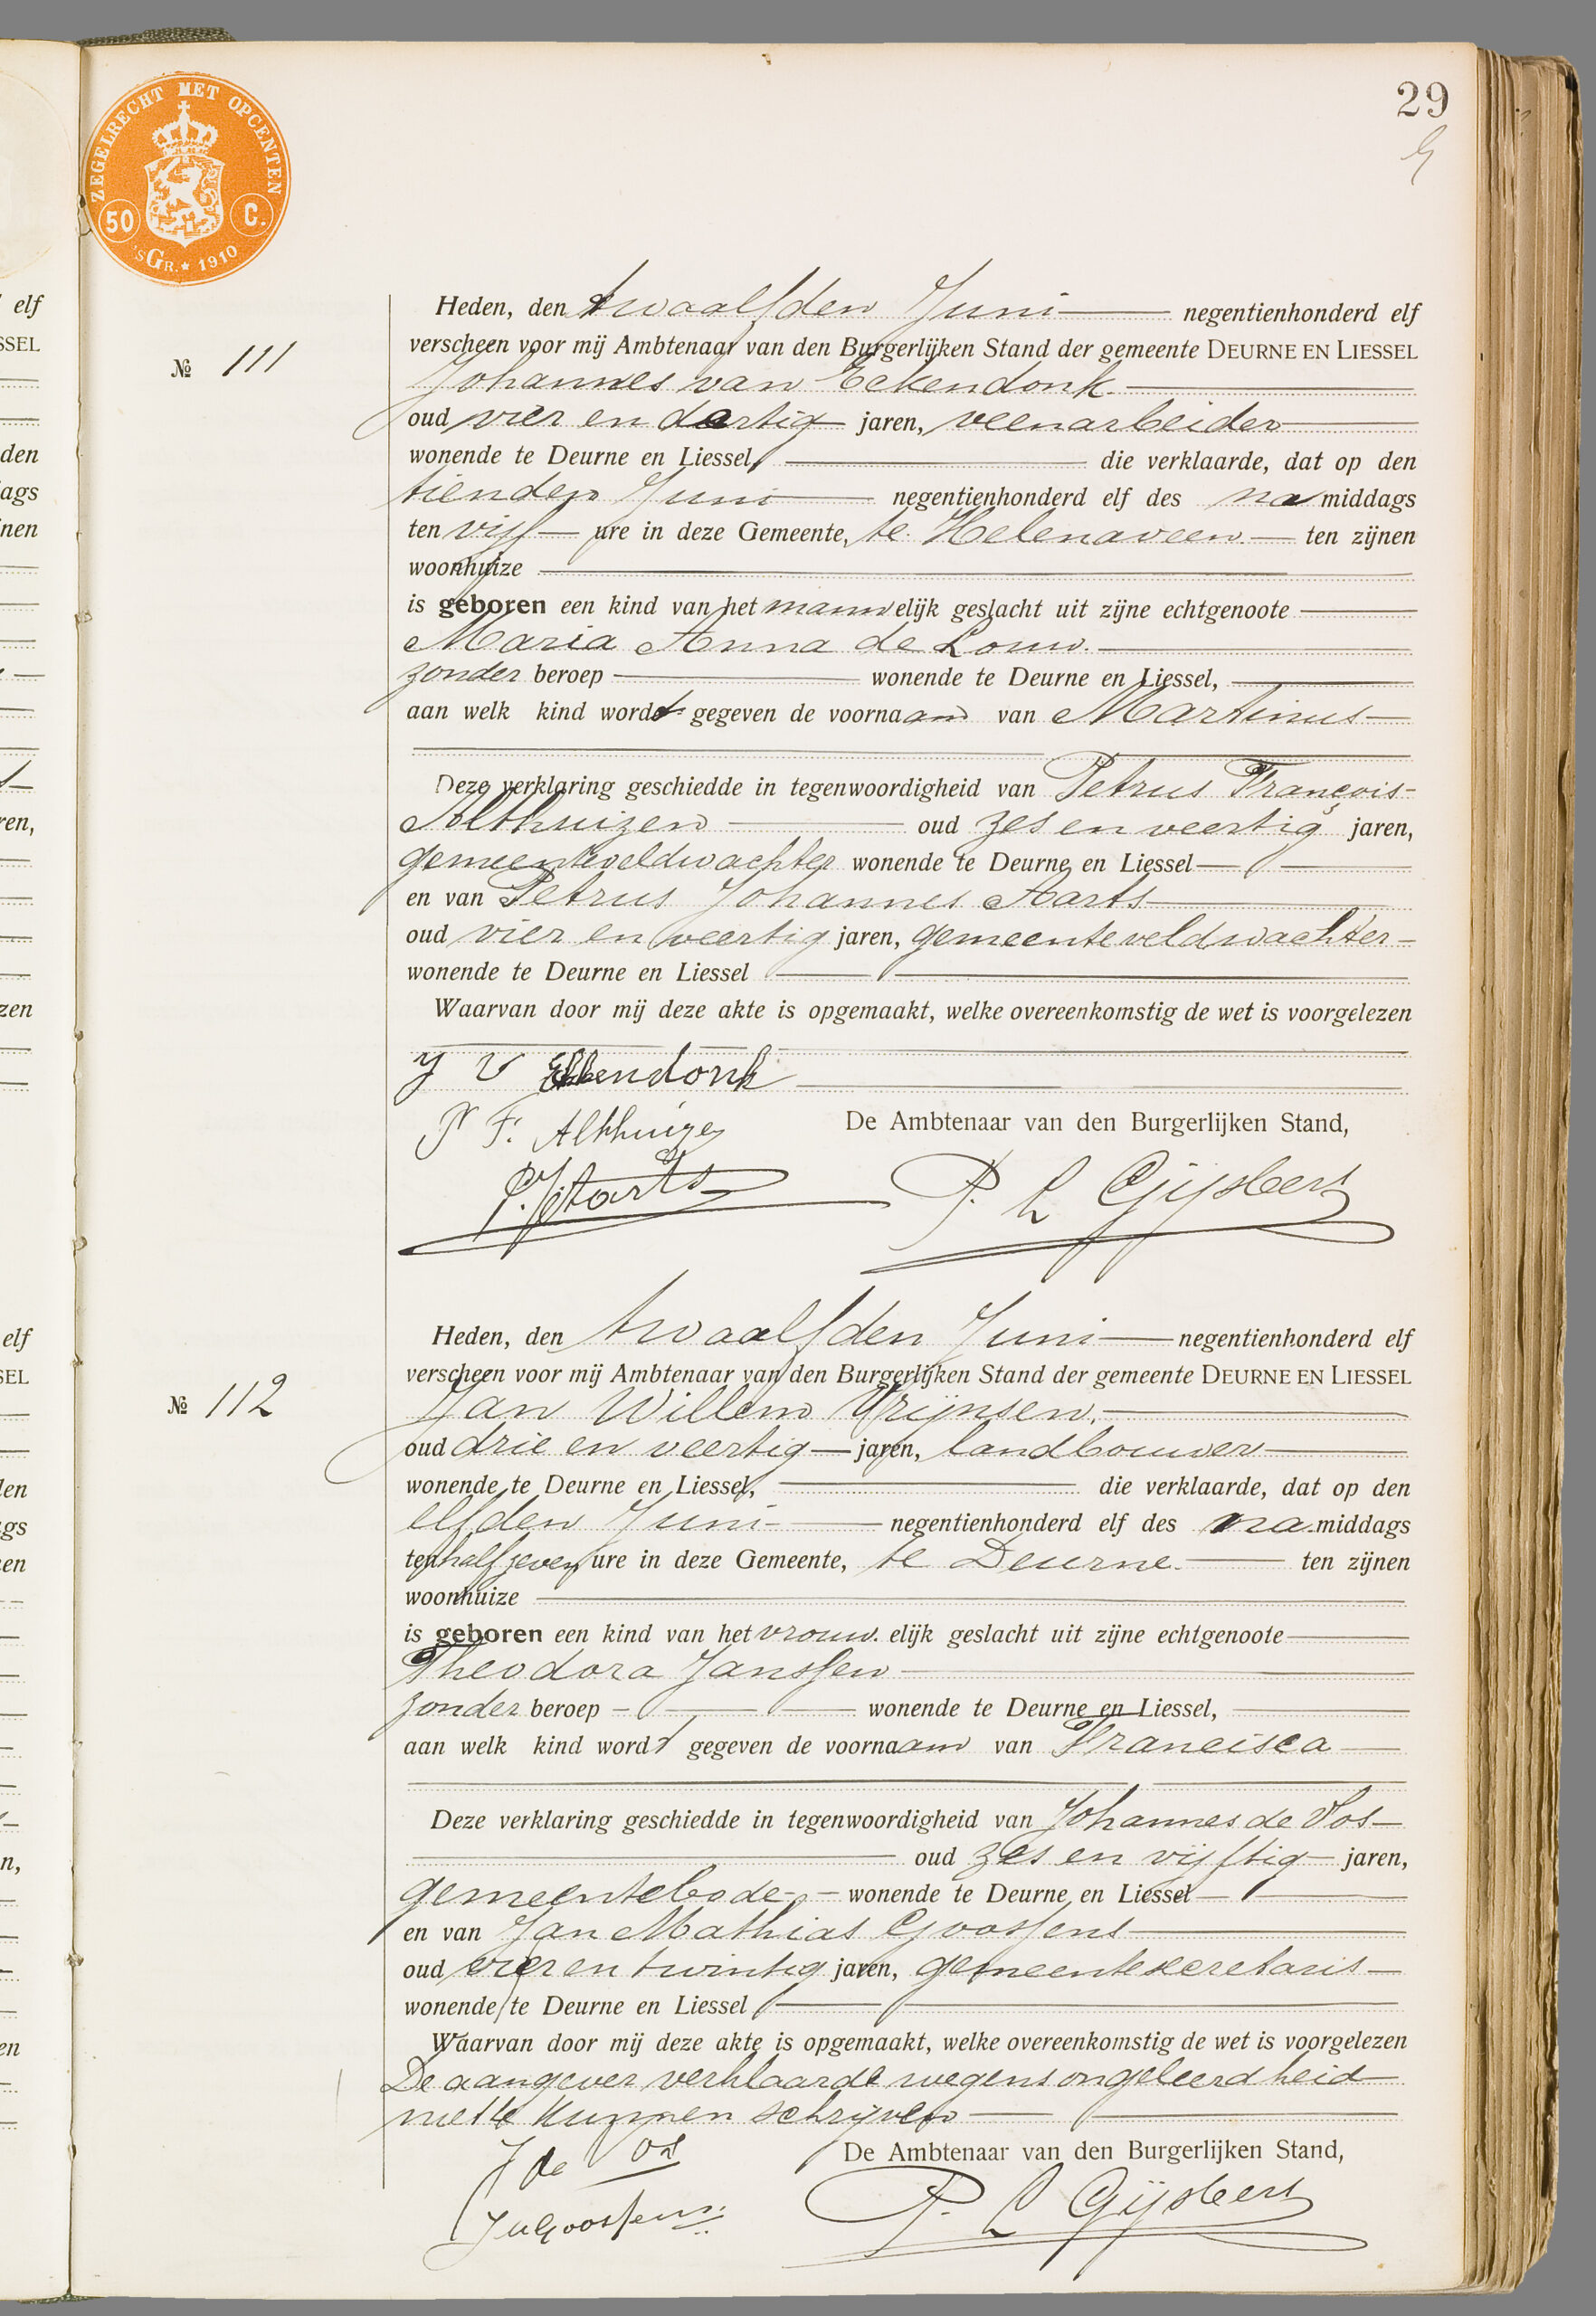 29
ZEGELRECHT MET OPCENTEN
50 C.
'sGR. ★ 1910
Heden, den twaalfden Juni negentienhonderd elf
verscheen voor mij Ambtenaar van den Burgerlijken Stand der gemeente DEURNE EN LIESSEL
№ 111
Johannes van Eckendonk.
oud vier en dertig jaren, veenarbeider
wonende te Deurne en Liessel, die verklaarde, dat op den
tienden Juni negentienhonderd elf des na middags
ten vijf ure in deze Gemeente, te Helenaveen. ten zijnen
woonhuize
is geboren een kind van het mann elijk geslacht uit zijne echtgenoote
Maria Anna de Louw.
zonder beroep wonende te Deurne en Liessel,
aan welk kind wordt gegeven de voornaam van Martinus
Deze verklaring geschiedde in tegenwoordigheid van Petrus François
Althuizen oud zes en veertig jaren,
gemeenteveldwachter wonende te Deurne en Liessel
en van Petrus Johannes Aarts
oud vier en veertig jaren, gemeenteveldwachter
wonende te Deurne en Liessel
Waarvan door mij deze akte is opgemaakt, welke overeenkomstig de wet is voorgelezen
J v Ekkendonk
P F. Althuizen
De Ambtenaar van den Burgerlijken Stand,
P. J. Aarts
P. L Gijsbers
Heden, den twaalfden Juni negentienhonderd elf
verscheen voor mij Ambtenaar van den Burgerlijken Stand der gemeente DEURNE EN LIESSEL
№ 112
Jan Willem Vrijnsen.
oud drie en veertig jaren, landbouwer
wonende te Deurne en Liessel, die verklaarde, dat op den
elfden Juni negentienhonderd elf des na middags
ten half zeven ure in deze Gemeente, te Deurne. ten zijnen
woonhuize
is geboren een kind van het vrouw. elijk geslacht uit zijne echtgenoote
Theodora Janssen
zonder beroep wonende te Deurne en Liessel,
aan welk kind wordt gegeven de voornaam van Francisca
Deze verklaring geschiedde in tegenwoordigheid van Johannes de Vos
oud zes en vijftig jaren,
gemeentebode wonende te Deurne en Liessel
en van Jan Mathias Goossens
oud vier en twintig jaren, gemeentesecretaris
wonende te Deurne en Liessel
Waarvan door mij deze akte is opgemaakt, welke overeenkomstig de wet is voorgelezen
De aangever verklaarde wegens ongeleerdheid
niet te kunnen schrijven
J de Vos
De Ambtenaar van den Burgerlijken Stand,
J M Goossens
P. L Gijsbers